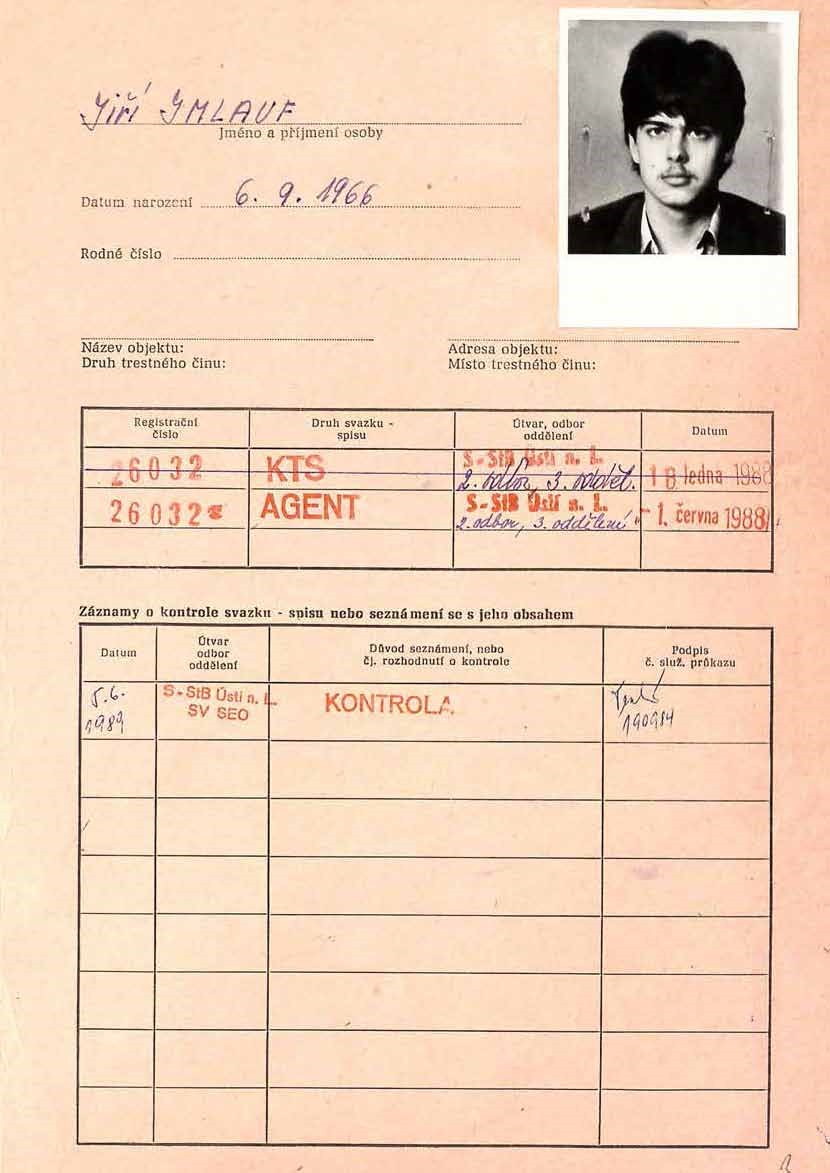 Jiří IMLAUF
Jméno a příjmení osoby
Datum narození 6. 9. 1966
Rodné číslo
Název objektu:
Druh trestného činu:
Adresa objektu:
Místo trestného činu:
Registrační číslo
Druh svazku - spisu
Útvar, odbor oddělení
Datum
26032
KTS
S-StB Ústí n. L.
2. odbor, 3. odděl.
18 ledna 1988
26032
AGENT
S-StB Ústí n. L.
2. odbor, 3. oddělení
- 1. června 1988
Záznamy o kontrole svazku - spisu nebo seznámení se s jeho obsahem
Datum
Útvar
odbor
oddělení
Důvod seznámení, nebo
čj. rozhodnutí o kontrole
Podpis
č. služ. průkazu
5.6.
1989
S-StB Ústí n. L.
SV SEO
KONTROLA